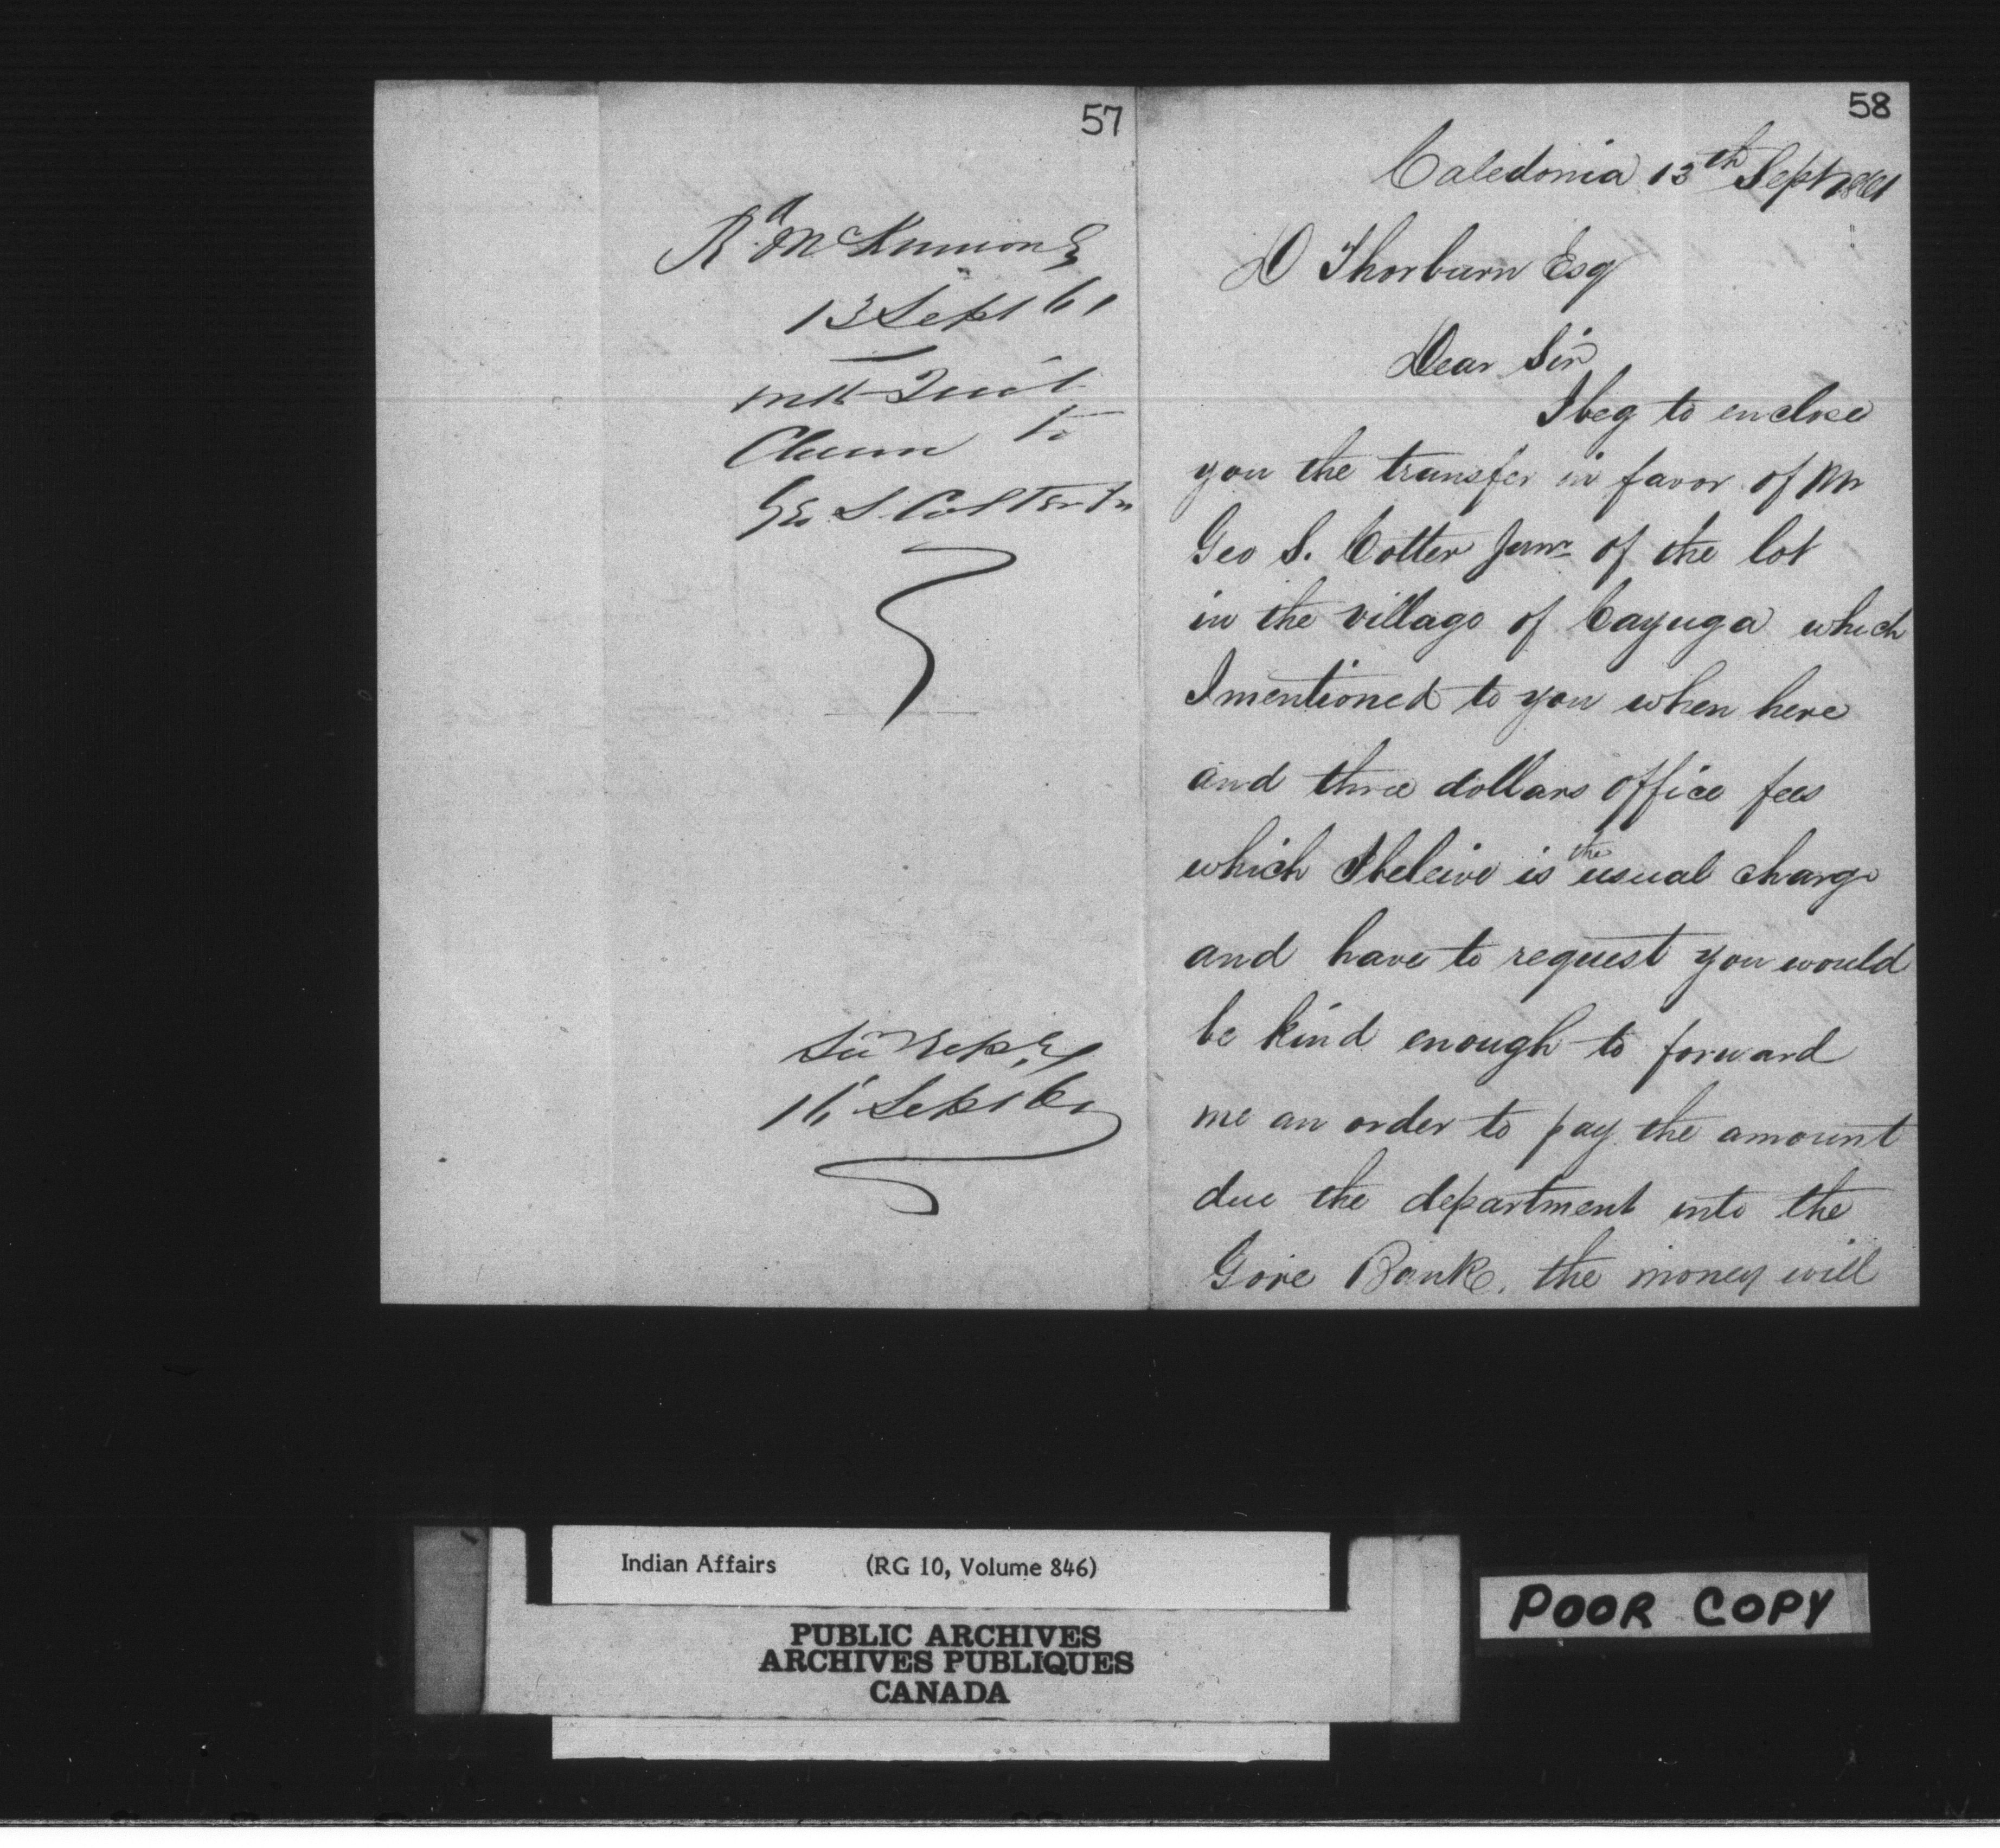 57
Rd McKinnon E
13 Sept 61
with Quit
Claim to
Geo S. Cotter Jr
See Reply
16 Sept 61
58
Caledonia 13th Sept 1861
D Thorburn Esq
Dear Sir
I beg to enclose
you the transfer in favor of Mr
Geo S. Cotter Junr of the lot
in the village of Cayuga which
I mentioned to you when here
and three dollars office fees
which I beleive is the usual charge
and have to request you would
be kind enough to forward
me an order to pay the amount
due the department into the
Gore Bank, the money will
Indian Affairs (RG 10, Volume 846)
PUBLIC ARCHIVES
ARCHIVES PUBLIQUES
CANADA
POOR COPY